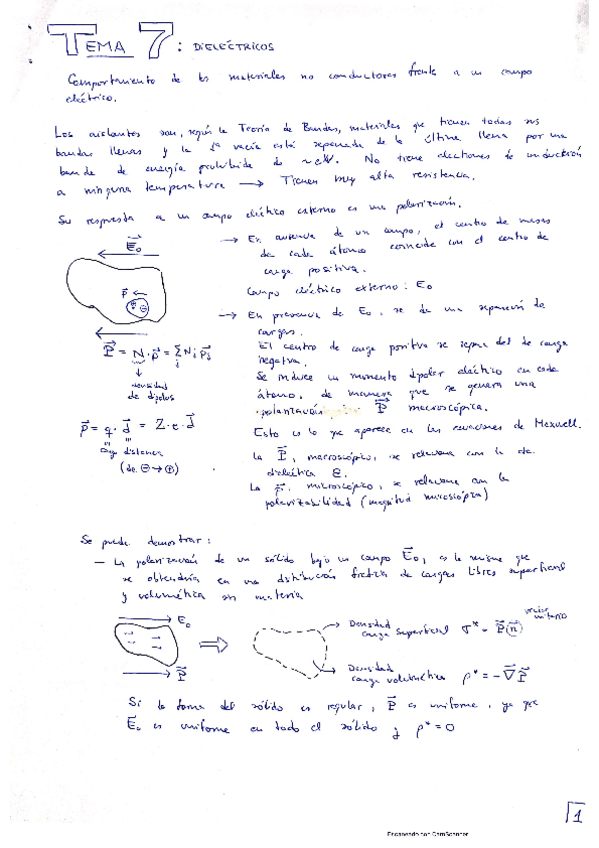 TEMA 7: DIELÉCTRICOS
Comportamiento de los materiales no conductores frente a un campo
eléctrico.
Los aislantes son, según la Teoría de Bandas, materiales que tienen todas sus
bandas llenas y la 1ª vacía está separada de la última llena por una
banda de energía prohibida de eV. No tiene electrones de conducción
a ninguna temperatura → Tienen muy alta resistencia.
Su respuesta a un campo eléctrico externo es una polarización.
E₀
→ En ausencia de un campo, el centro de masas
de cada átomo coincide con el centro de
carga positiva.
Campo eléctrico externo: E₀
→ En presencia de E₀, se da una separación de
cargas.
El centro de carga positiva se separa del de carga
negativa.
Se induce un momento dipolar eléctrico en cada
átomo, de manera que se genera una
polarización P⃗ macroscópica.
Esto es lo que aparece en las ecuaciones de Maxwell.
La P⃗, macroscópica, se relaciona con la cte.
dieléctrica ε.
La p⃗, microscópico, se relaciona con la
polarizabilidad (magnitud microscópica)
p⃗
P⃗ = N·p⃗ = Σ Nⱼ p⃗ⱼ
densidad
de dipolos
p⃗ = q·d⃗ = Z·e·d⃗
carga distancia
(de ⊖→⊕)
Se puede demostrar:
— La polarización de un sólido bajo un campo E⃗₀, es la misma que
se obtendría en una distribución ficticia de cargas libres superficial
y volumétrica sin materia
E₀
P⃗
Densidad
carga superficial σ* = P⃗(n⃗)
vector
unitario
Densidad
carga volumétrica ρ* = -∇⃗P⃗
Si la forma del sólido es regular, P⃗ es uniforme, ya que
E⃗₀ es uniforme en todo el sólido y ρ* = 0
1
Escaneado con CamScanner